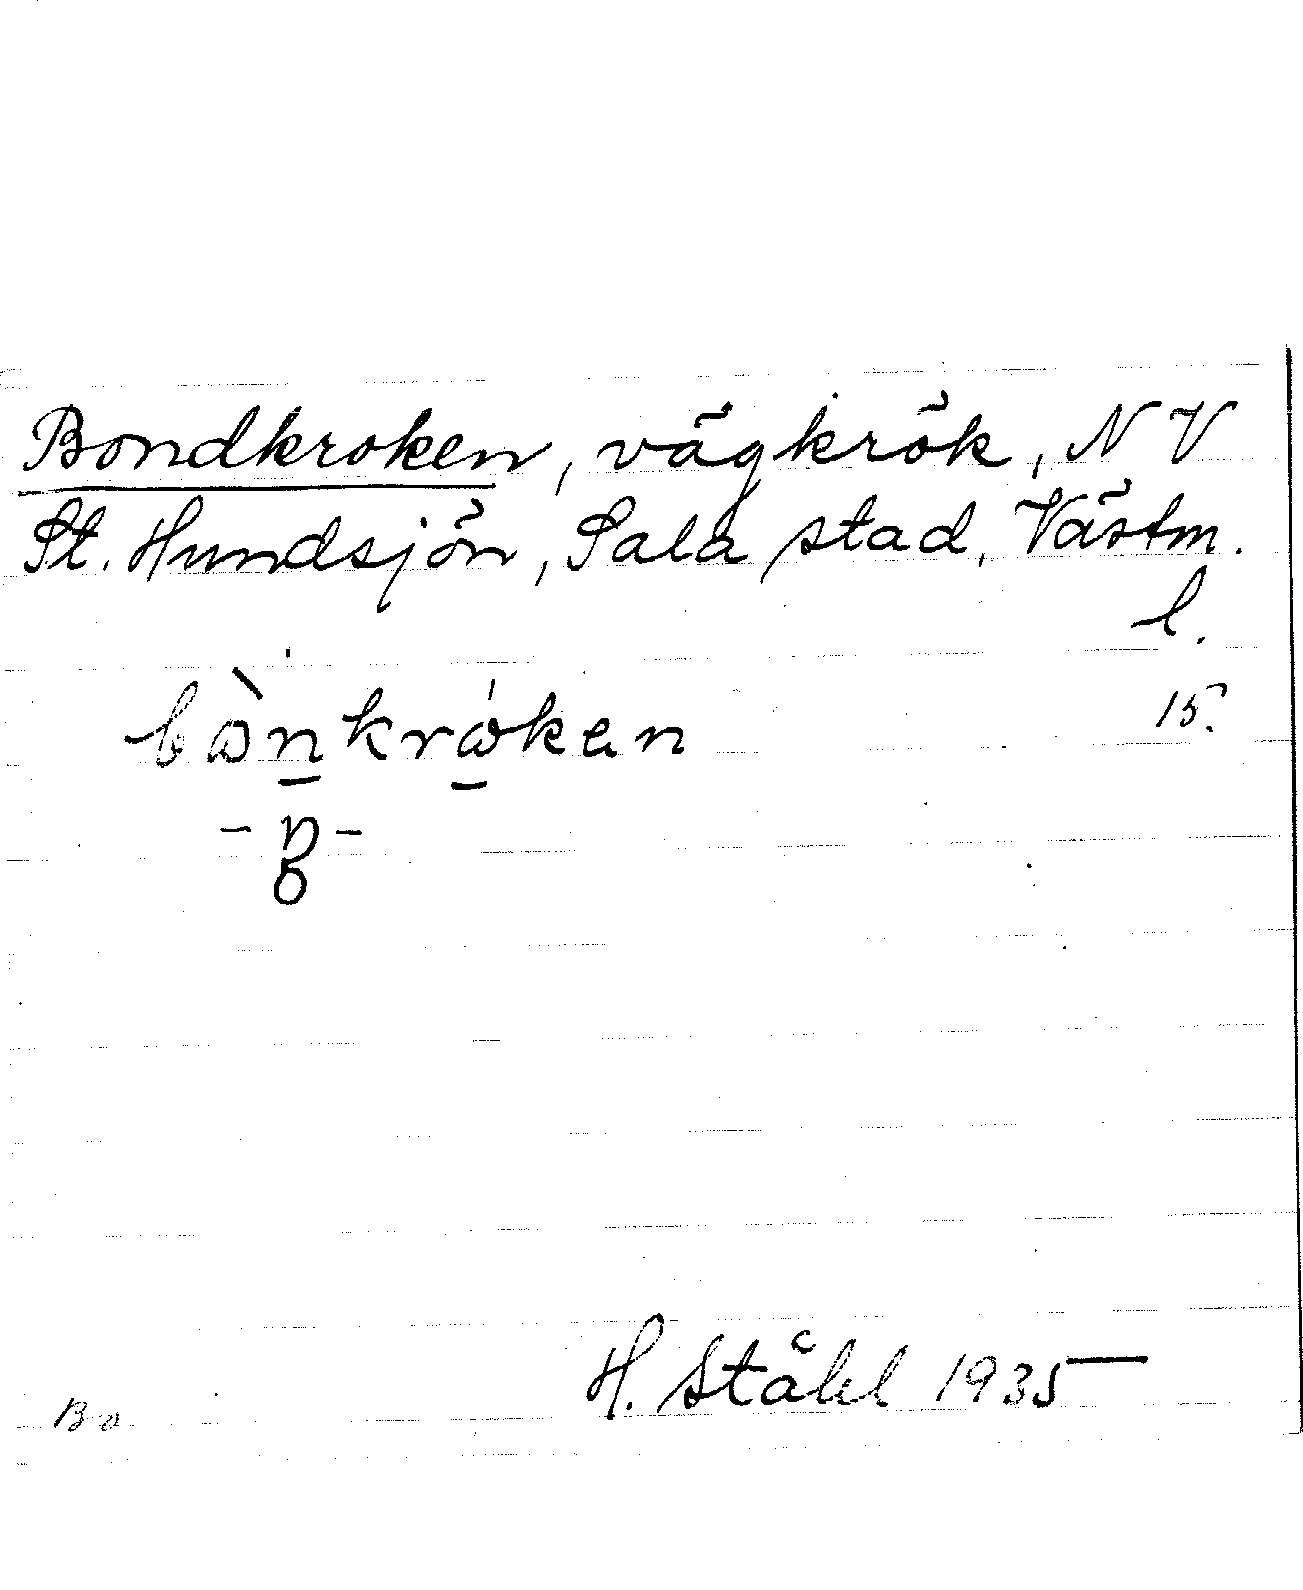 Bondkroken, vägkrök, NV
St. Hundsjön, Sala stad, Västm.
l.
15.
bònkróken
-ŋ-
H. Ståhl 1935
Bo